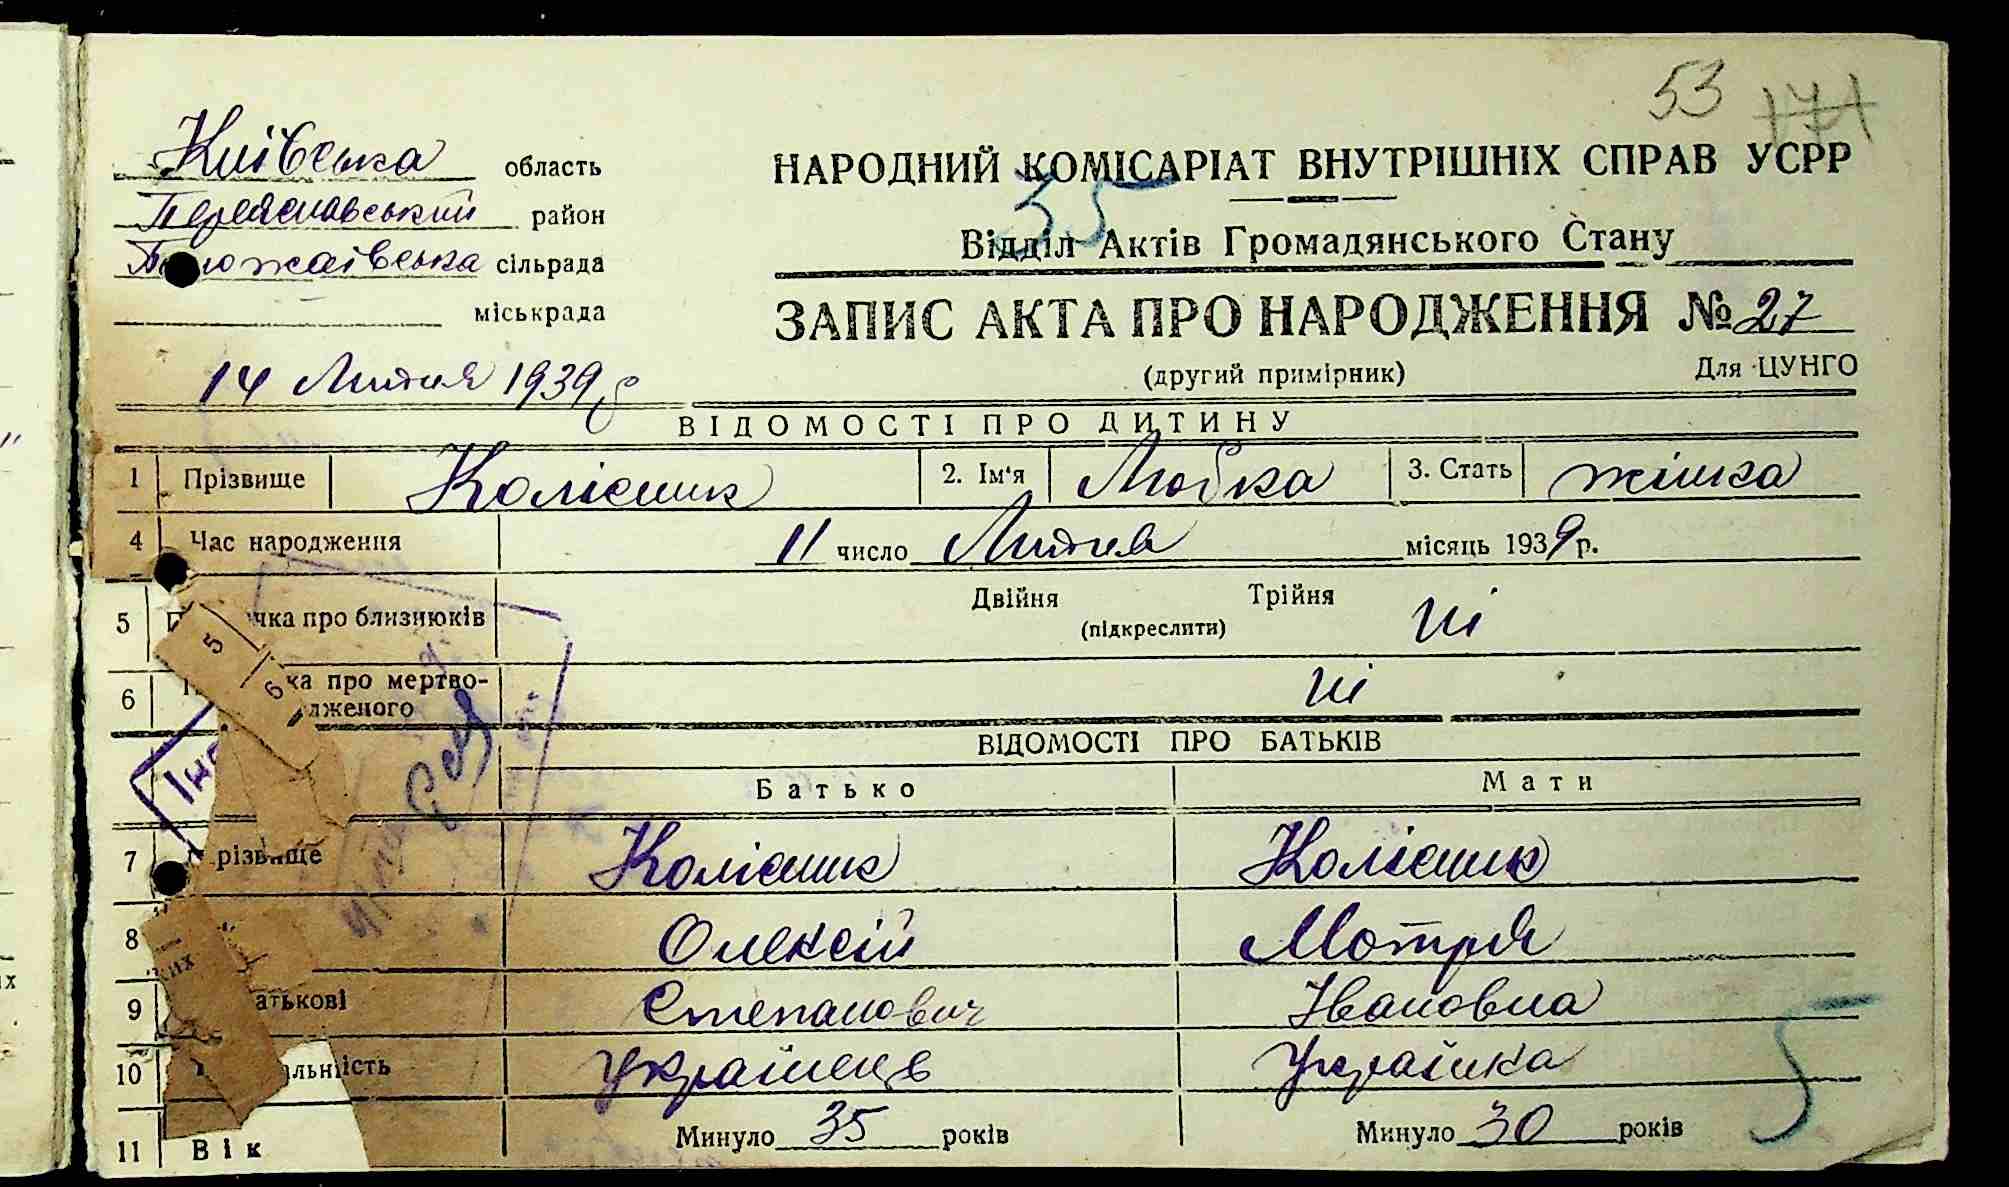 53 171
Київська область
Переяславський район
сільрада
міськрада
НАРОДНИЙ КОМІСАРІАТ ВНУТРІШНІХ СПРАВ УСРР
35
Відділ Актів Громадянського Стану
ЗАПИС АКТА ПРО НАРОДЖЕННЯ № 27
(другий примірник) Для ЦУНГО
14 Лютня 1939 р
ВІДОМОСТІ ПРО ДИТИНУ
1 Прізвище Колісник 2. Ім'я Любка 3. Стать жінка
4 Час народження 11 число Лютня місяць 1939 р.
5 чка про близнюків Двійня Трійня ні
(підкреслити)
5
6
6 ка про мертво-
дженого ні
ВІДОМОСТІ ПРО БАТЬКІВ
Батько Мати
7 різвище Колісник Колісник
8 Олексій Мотря
их
9 атькові Степанович Івановна
10 альність Українець Українка
5
11 Вік Минуло 35 років Минуло 30 років